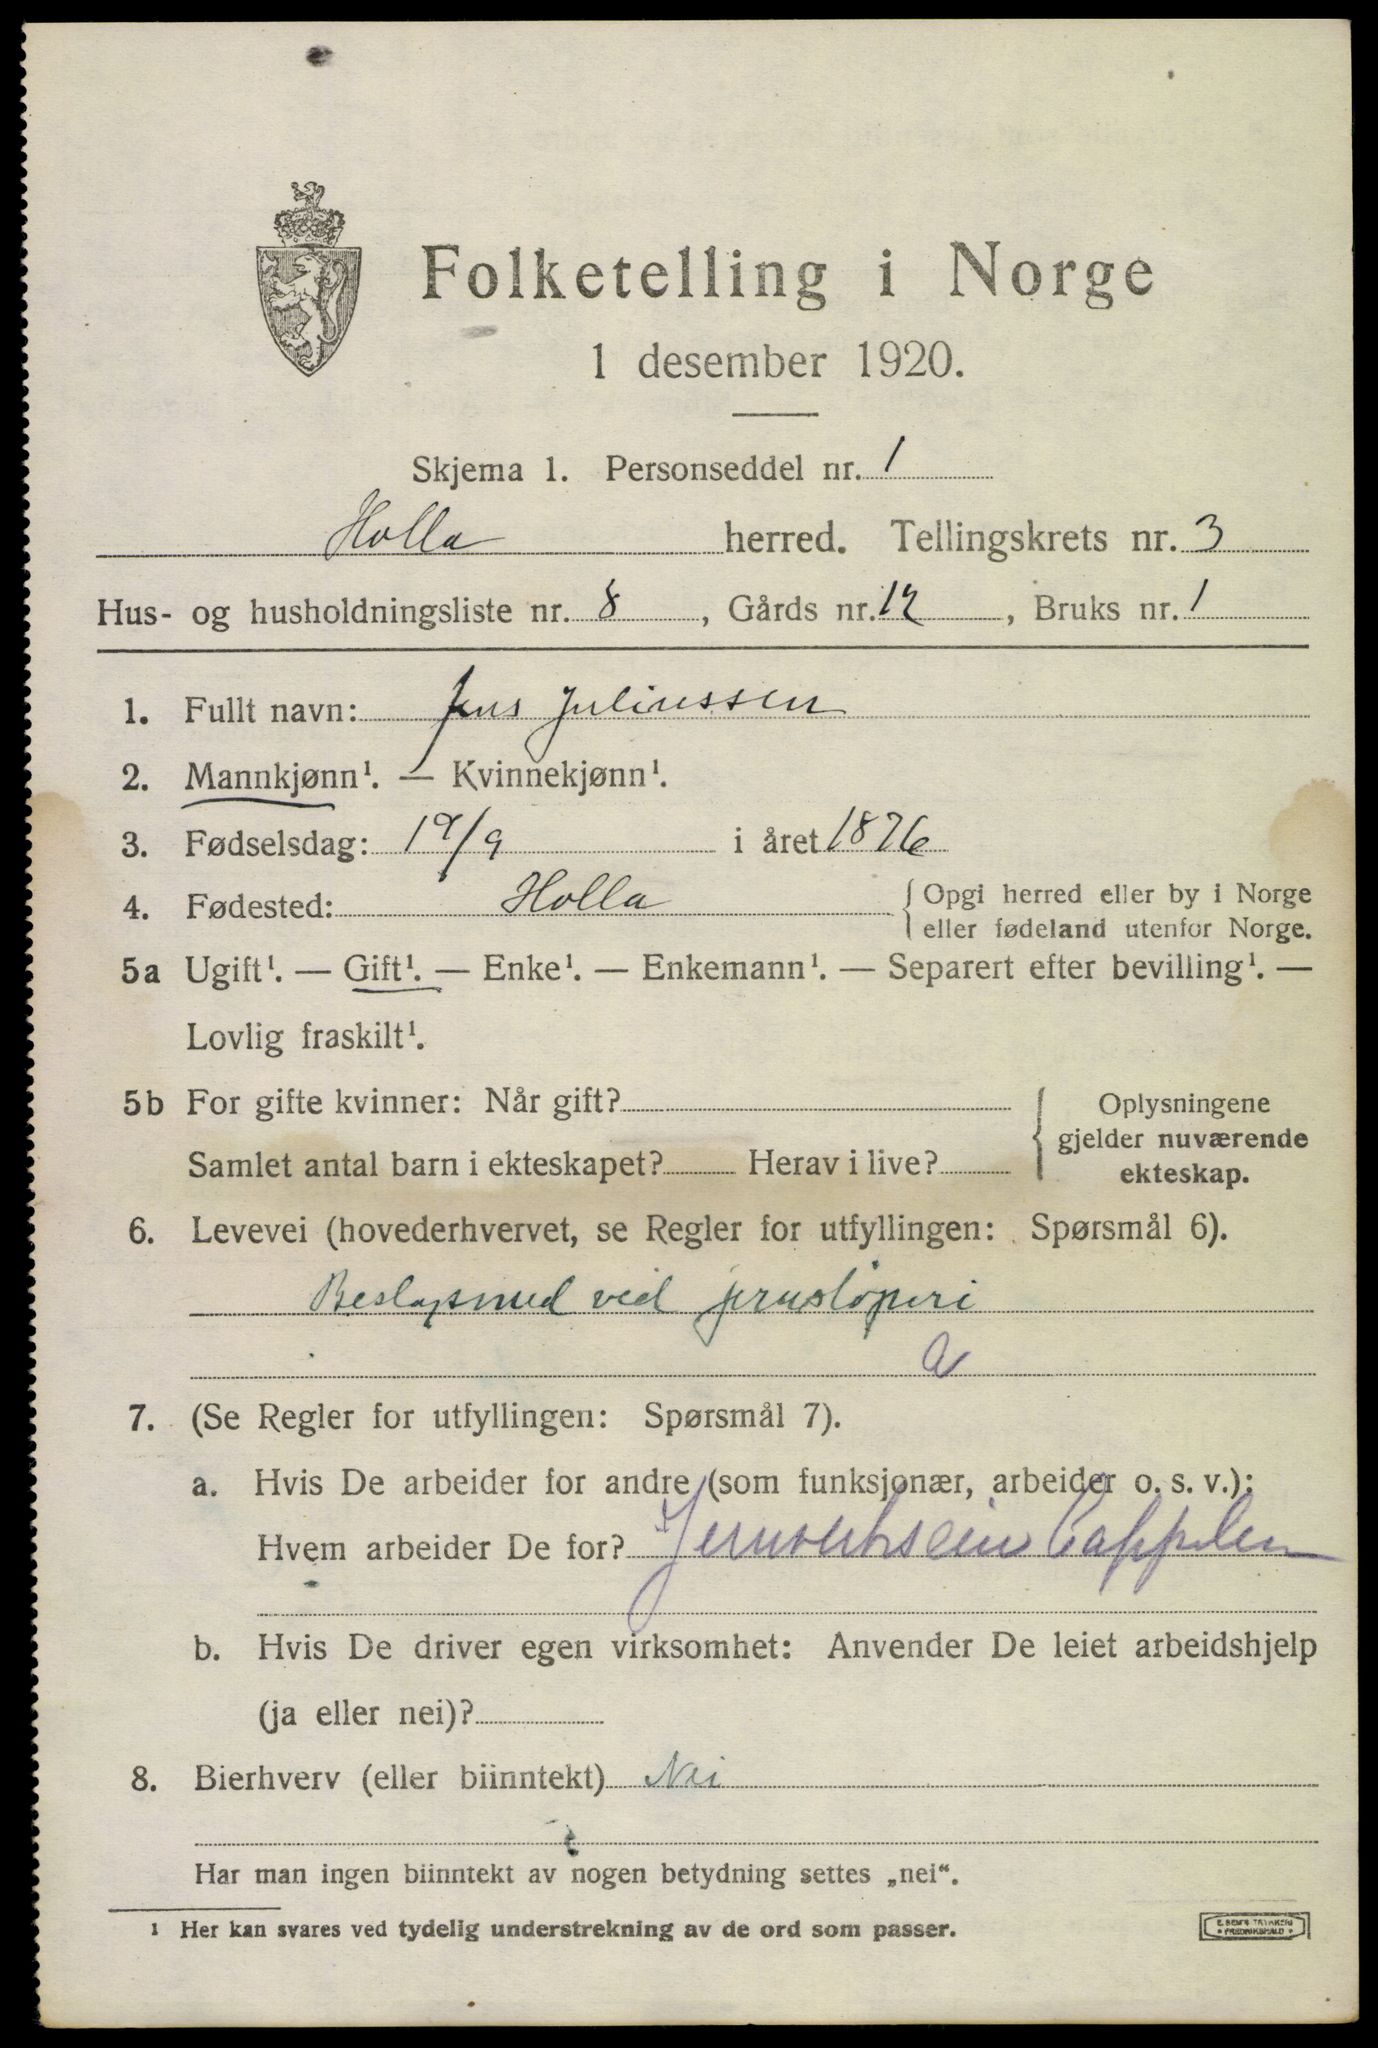 Folketelling i Norge
1 desember 1920.
Skjema 1. Personseddel nr. 1
Holla herred. Tellingskrets nr. 3
Hus- og husholdningsliste nr. 8, Gårds nr. 12, Bruks nr. 1
1. Fullt navn: Jens Juliussen
2. Mannkjønn¹. — Kvinnekjønn¹.
3. Fødselsdag: 19/9 i året 1876
4. Fødested: Holla { Opgi herred eller by i Norge
eller fødeland utenfor Norge.
5a Ugift¹. — Gift¹. — Enke¹. — Enkemann¹. — Separert efter bevilling¹. —
Lovlig fraskilt¹.
5b For gifte kvinner: Når gift? { Oplysningene
gjelder nuværende
Samlet antal barn i ekteskapet? Herav i live? ekteskap.
6. Levevei (hovederhvervet, se Regler for utfyllingen: Spørsmål 6).
Beslagsmed ved jernstöperi
a
7. (Se Regler for utfyllingen: Spørsmål 7).
a. Hvis De arbeider for andre (som funksjonær, arbeider o. s. v.):
Hvem arbeider De for? Jernverkseier Cappelen
b. Hvis De driver egen virksomhet: Anvender De leiet arbeidshjelp
(ja eller nei)?
8. Bierhverv (eller biinntekt) Nei
Har man ingen biinntekt av nogen betydning settes „nei“.
¹ Her kan svares ved tydelig understrekning av de ord som passer.
E. SEM'S TRYKKERI
* FREDRIKSHALD *